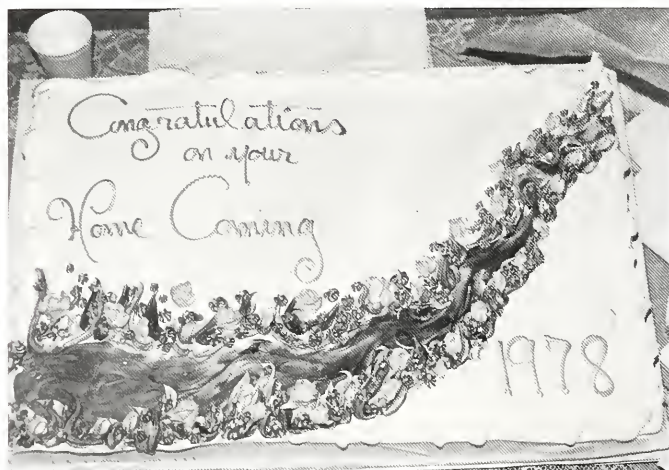 Congratulations
on your
Home Coming
1978